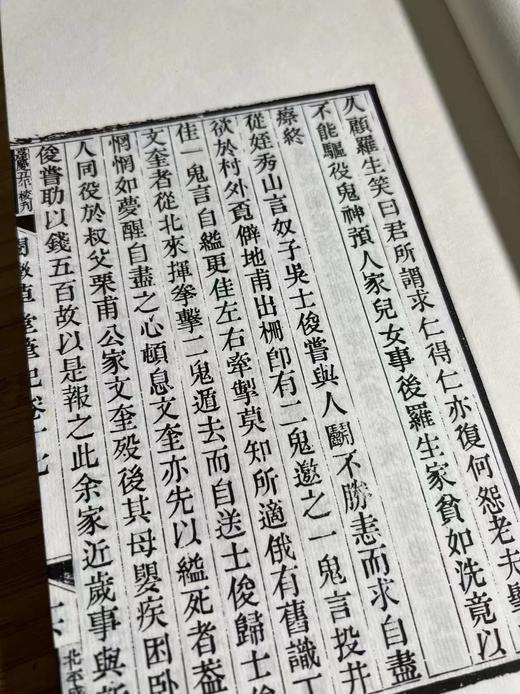 久顧羅生笑曰君所謂求仁得仁亦復何怨老夫
不能驅役鬼神預人家兒女事後羅生家貧如洗竟以
瘵終
從姪秀山言奴子吳士俊嘗與人鬭不勝恚而求自盡
欲於村外覓僻地甫出柵即有二鬼邀之一鬼言投井
佳一鬼言自縊更佳左右牽掣莫知所適俄有舊識丁
文奎者從北來揮拳擊二鬼遁去而自送士俊歸士
惘惘如夢醒自盡之心頓息文奎亦先以縊死者蓋
人同役於叔父栗甫公家文奎歿後其母嬰疾困臥
俊嘗助以錢五百故以是報之此余家近歲事與
閱微草堂筆記卷十七
北平盛